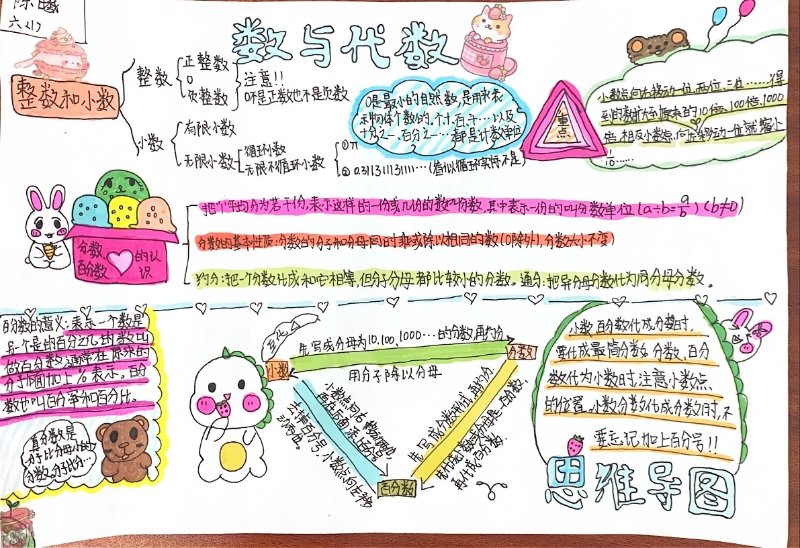 六(1)
数与代数
整数和小数
整数
正整数
0
负整数
注意!!
0不是正数也不是负数
小数
有限小数
无限小数
循环小数
无限不循环小数
①π
②0.31131113111……(看似循环实际不是)
0是最小的自然数,是用来表
示物体个数的,个,十,百,千…以及
十分之一,百分之一…都是计数单位
重点
小数点向右移动一位,两位,三位……得
到的数扩大到原来的10倍,100倍,1000
倍,相反小数点向左移动一位就缩小
分数,
百分数
的认
识
把"1"平均分为若干份,表示这样的一份或几份的数叫分数,其中表示一份的叫分数单位(a÷b=a/b)(b≠0)
分数的基本性质:分数的分子和分母同时乘或除以相同的数(0除外),分数大小不变)
约分:把一个分数化成和它相等,但分子分母都比较小的分数。通分:把异分母分数化为同分母分数。
百分数的意义:表示一个数是
另一个是的百分之几的数叫
做百分数,通常在原来的
分子后面加上%表示。百分
数也叫百分率和百分比。
百分数是
分母比分子
互化
小数
分数
百分数
先写成分母为10,100,1000…的分数,再约分
用分子除以分母
小数点向右移动
两位,后面添上百分号
去掉百分号,小数点向左移动
两位。
先写成分数形式,再约分
再化成百分数.
小数,百分数化成分数时,
要化成最简分数,分数,百分
数化为小数时,注意小数点
的位置,小数分数化成分数时,不
要忘记加上百分号!!
思维导图